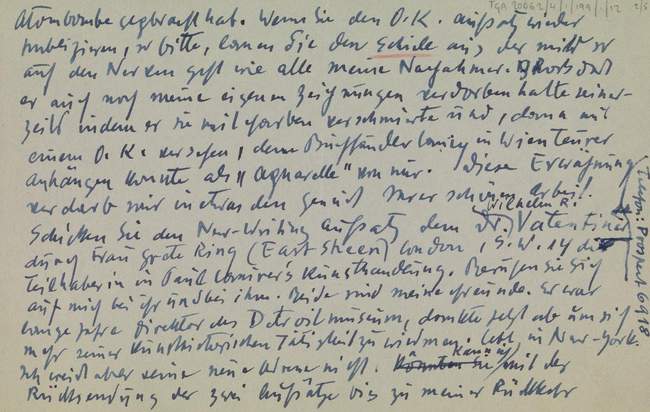 TGA 20062/4/1/199/1/12 2/3
Atombombe gegbracht hab. Wenn Sie den O.K. Aufsatz wieder
publizieren, so bitte, lassen Sie den Schiele aus der mir so
auf den Nerven geht wie alle meine Nachahmer. dass
er auch noch meine eigenen Zeichnungen verdorben hatte seiner-
zeit indem er sie mit Farben verschmierte und, dann mit
einem O.K. versehen, dem Buchhändler Lanyi in Wien teurer
anhängen konnte als "Aquarelle" von mir. Diese Erwähnung
verdarb mir in etwas den Genuß Ihrer schönen Arbeit.
Schicken Sie den New-Writing Aufsatz dem Dr. Wilhelm R. Valentiner
durch Frau Grete Ring (East Sheen) London, S.W. 14 die
Teilhaberin in Paul Cassirer's Kunsthandlung. Berufen Sie sich
auf mich bei ihr und bei ihm. Beide sind meine Freunde. Er war
lange Jahre Direktor des Detroit museum, dankte jetzt ab um sich
mehr seiner kunsthistorischen Tätigkeit zu widmen. Lebt in New-York.
Ich weiß aber seine neue Adresse nicht. Könnten Sie mit der
Rücksendung der zwei Aufsätze bis zu meiner Rückkehr
Telefon: Prospect 6978